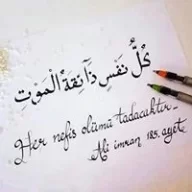 كُلُّ نَفْسٍ ذَآئِقَةُ الْمَوْتِ
Her nefis ölümü tadacaktır_
Ali imran 185. ayet